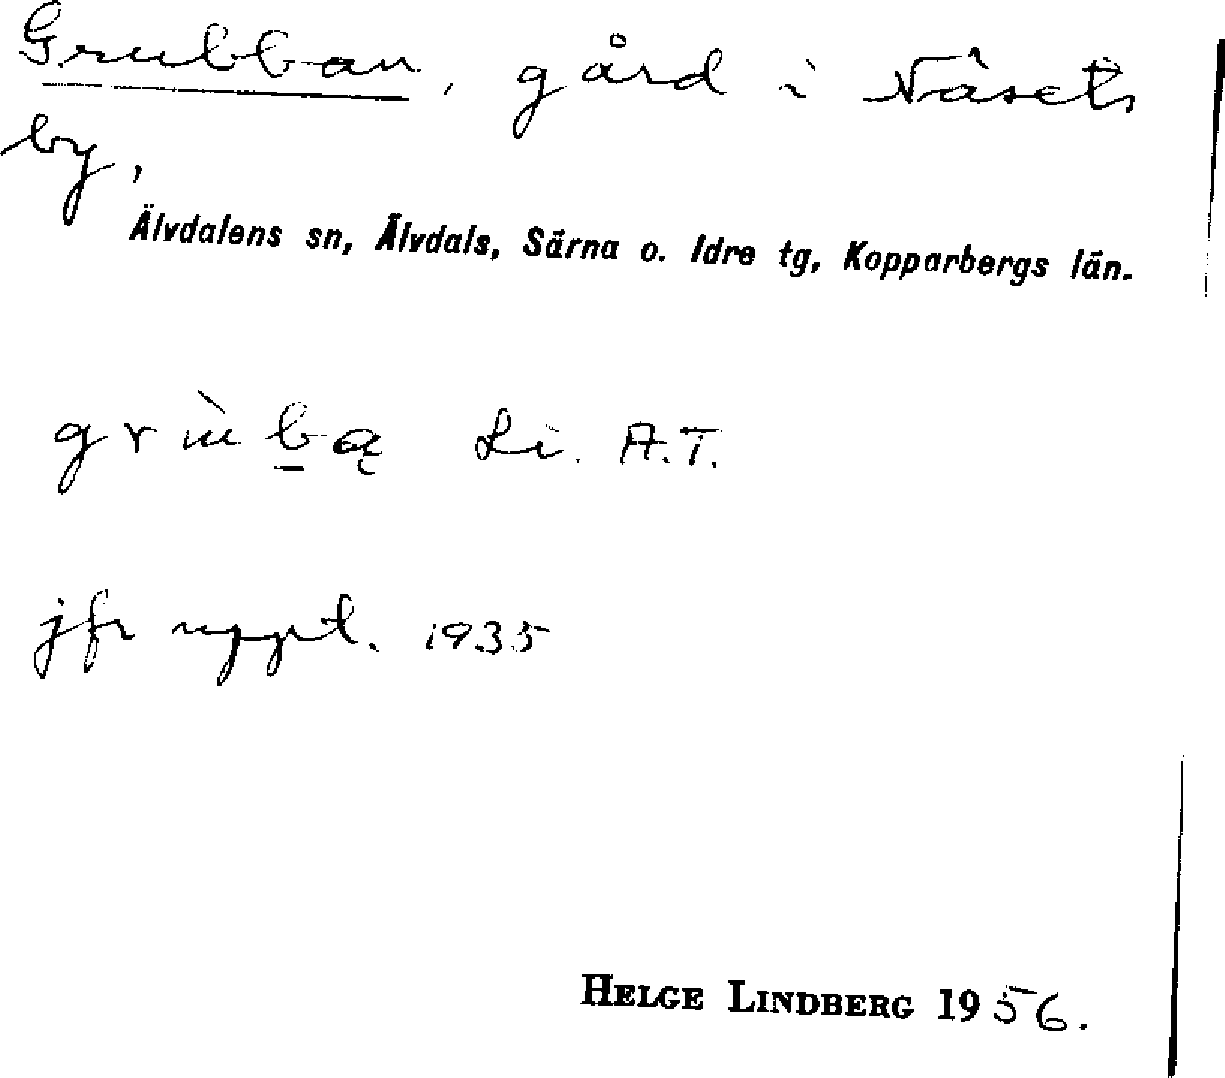 Grubban, gård i Näsets
by,
Älvdalens sn, Älvdals, Särna o. Idre tg, Kopparbergs län.
Li. A.T.
jfr uppt. 1935
HELGE LINDBERG 1956.